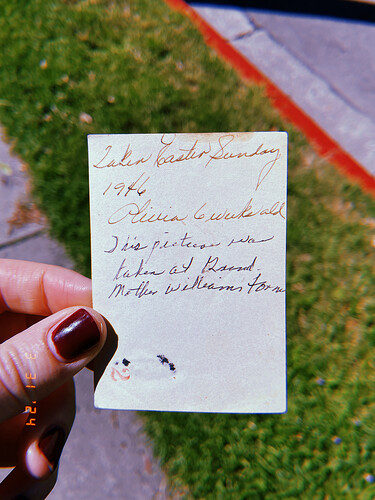 Taken Easter Sunday
1946
Olivia 6 weeks old
This picture was
taken at Grand
Mother Williams Farm
2
3 31 '24